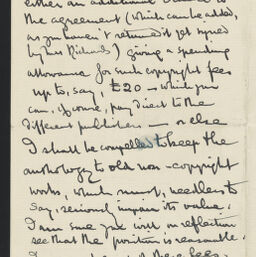 either an additional clause to
the agreement (which can be added,
as you haven't returned it yet signed
by Mrs Richards) giving a spending
allowance for such copyright fees
up to, say, £20 — which you
can, of course, pay direct to the
different publishers — or else
I shall be compelled to keep the
anthology to old non-copyright
works, which must, needless to
say, seriously impair its value.
I am sure you will on reflection
see that the position is reasonable.
I